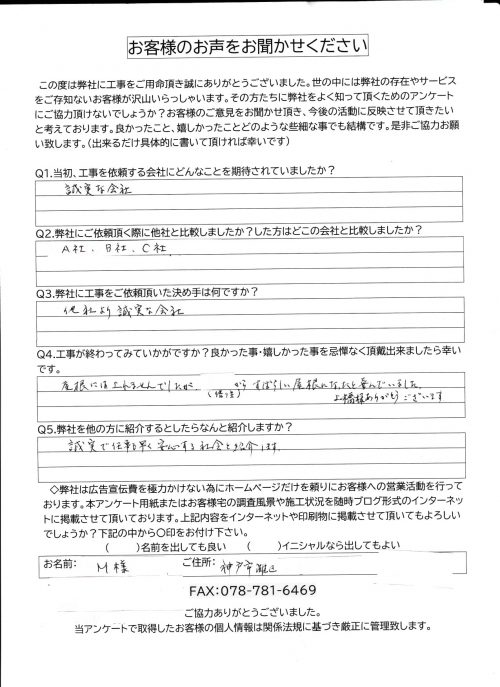 お客様のお声をお聞かせください
この度は弊社に工事をご用命頂き誠にありがとうございました。世の中には弊社の存在やサービス
をご存知ないお客様が沢山いらっしゃいます。その方たちに弊社をよく知って頂くためのアンケート
にご協力頂けないでしょうか？お客様のご意見をお聞かせ頂き、今後の活動に反映させて頂きたい
と考えております。良かったこと、嬉しかったことどのような些細な事でも結構です。是非ご協力お願
い致します。（出来るだけ具体的に書いて頂ければ幸いです）
Q1.当初、工事を依頼する会社にどんなことを期待されていましたか？
誠実な会社
Q2.弊社にご依頼頂く際に他社と比較しましたか？した方はどこの会社と比較しましたか？
A社、B社、C社
Q3.弊社に工事をご依頼頂いた決め手は何ですか？
他社より誠実な会社
Q4.工事が終わってみていかがですか？良かった事・嬉しかった事を忌憚なく頂戴出来ましたら幸い
です。
屋根には上れませんでしたが、
からすばらしい屋根になったと喜んでいました。
上橋様ありがとうございます
Q5.弊社を他の方に紹介するとしたらなんと紹介しますか？
誠実で仕事も早く安心する社会と紹介します。
◇弊社は広告宣伝費を極力かけない為にホームページだけを頼りにお客様への営業活動を行って
おります。本アンケート用紙またはお客様宅の調査風景や施工状況を随時ブログ形式のインターネッ
トに掲載させて頂いております。上記内容をインターネットや印刷物に掲載させて頂いてもよろしい
でしょうか？下記の中から〇印をお付け下さい。
（　　）名前を出しても良い （　　）イニシャルなら出してもよい
お名前： M様 ご住所： 神戸市灘区
FAX:078-781-6469
ご協力ありがとうございました。
当アンケートで取得したお客様の個人情報は関係法規に基づき厳正に管理致します。